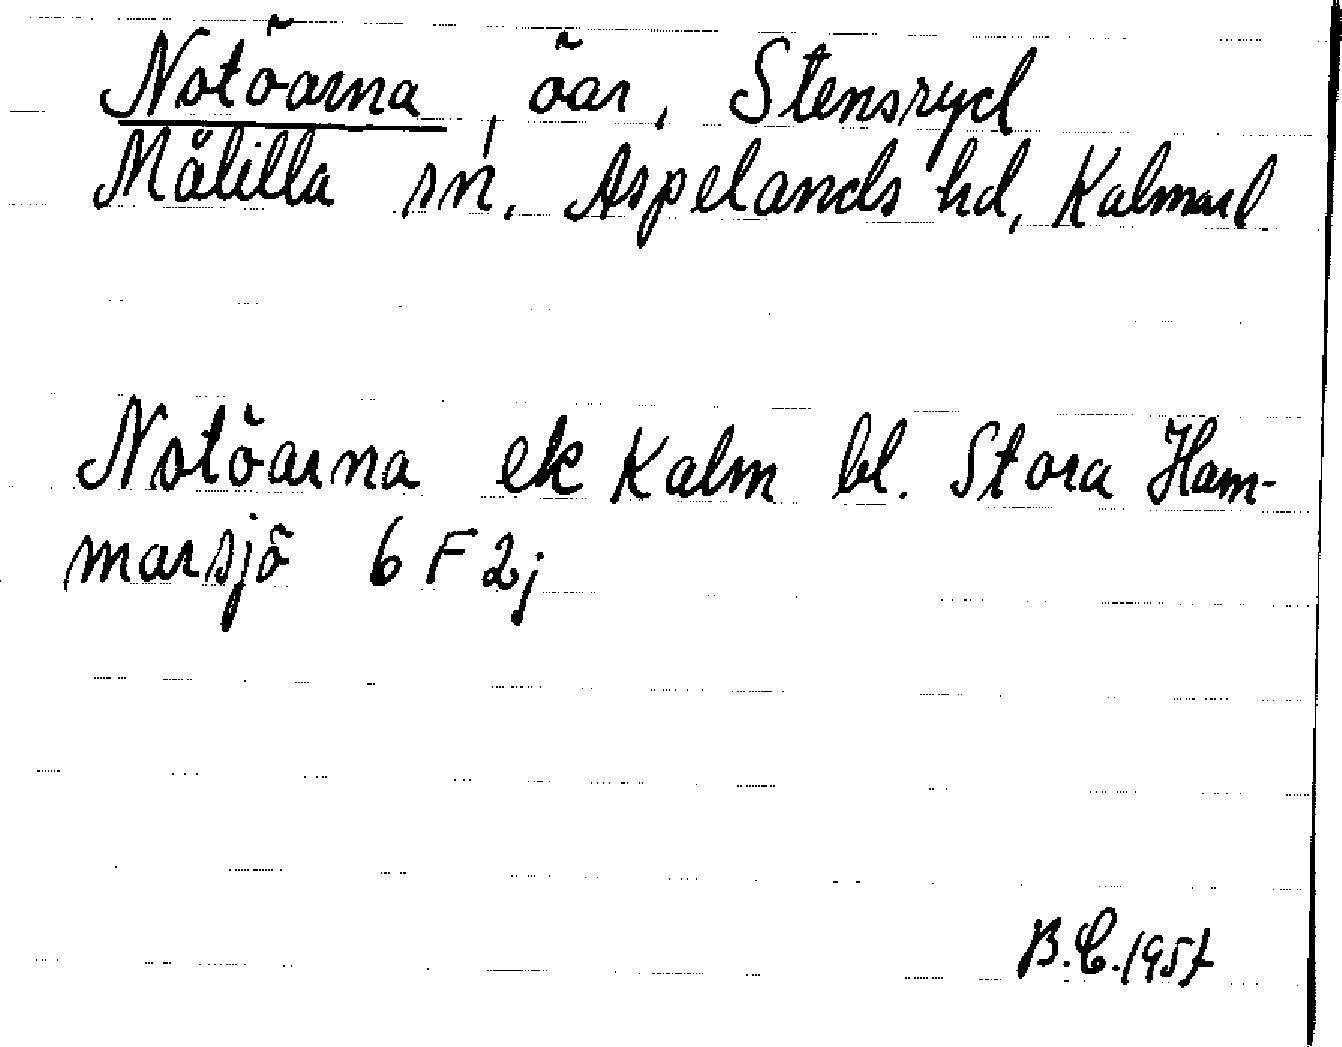 Notöarna, öar, Stensryd
Målilla sn, Aspelands hd, Kalmarl
Notöarna ek Kalm bl. Stora Ham-
marsjö 6 F 2j
B.C. 1957